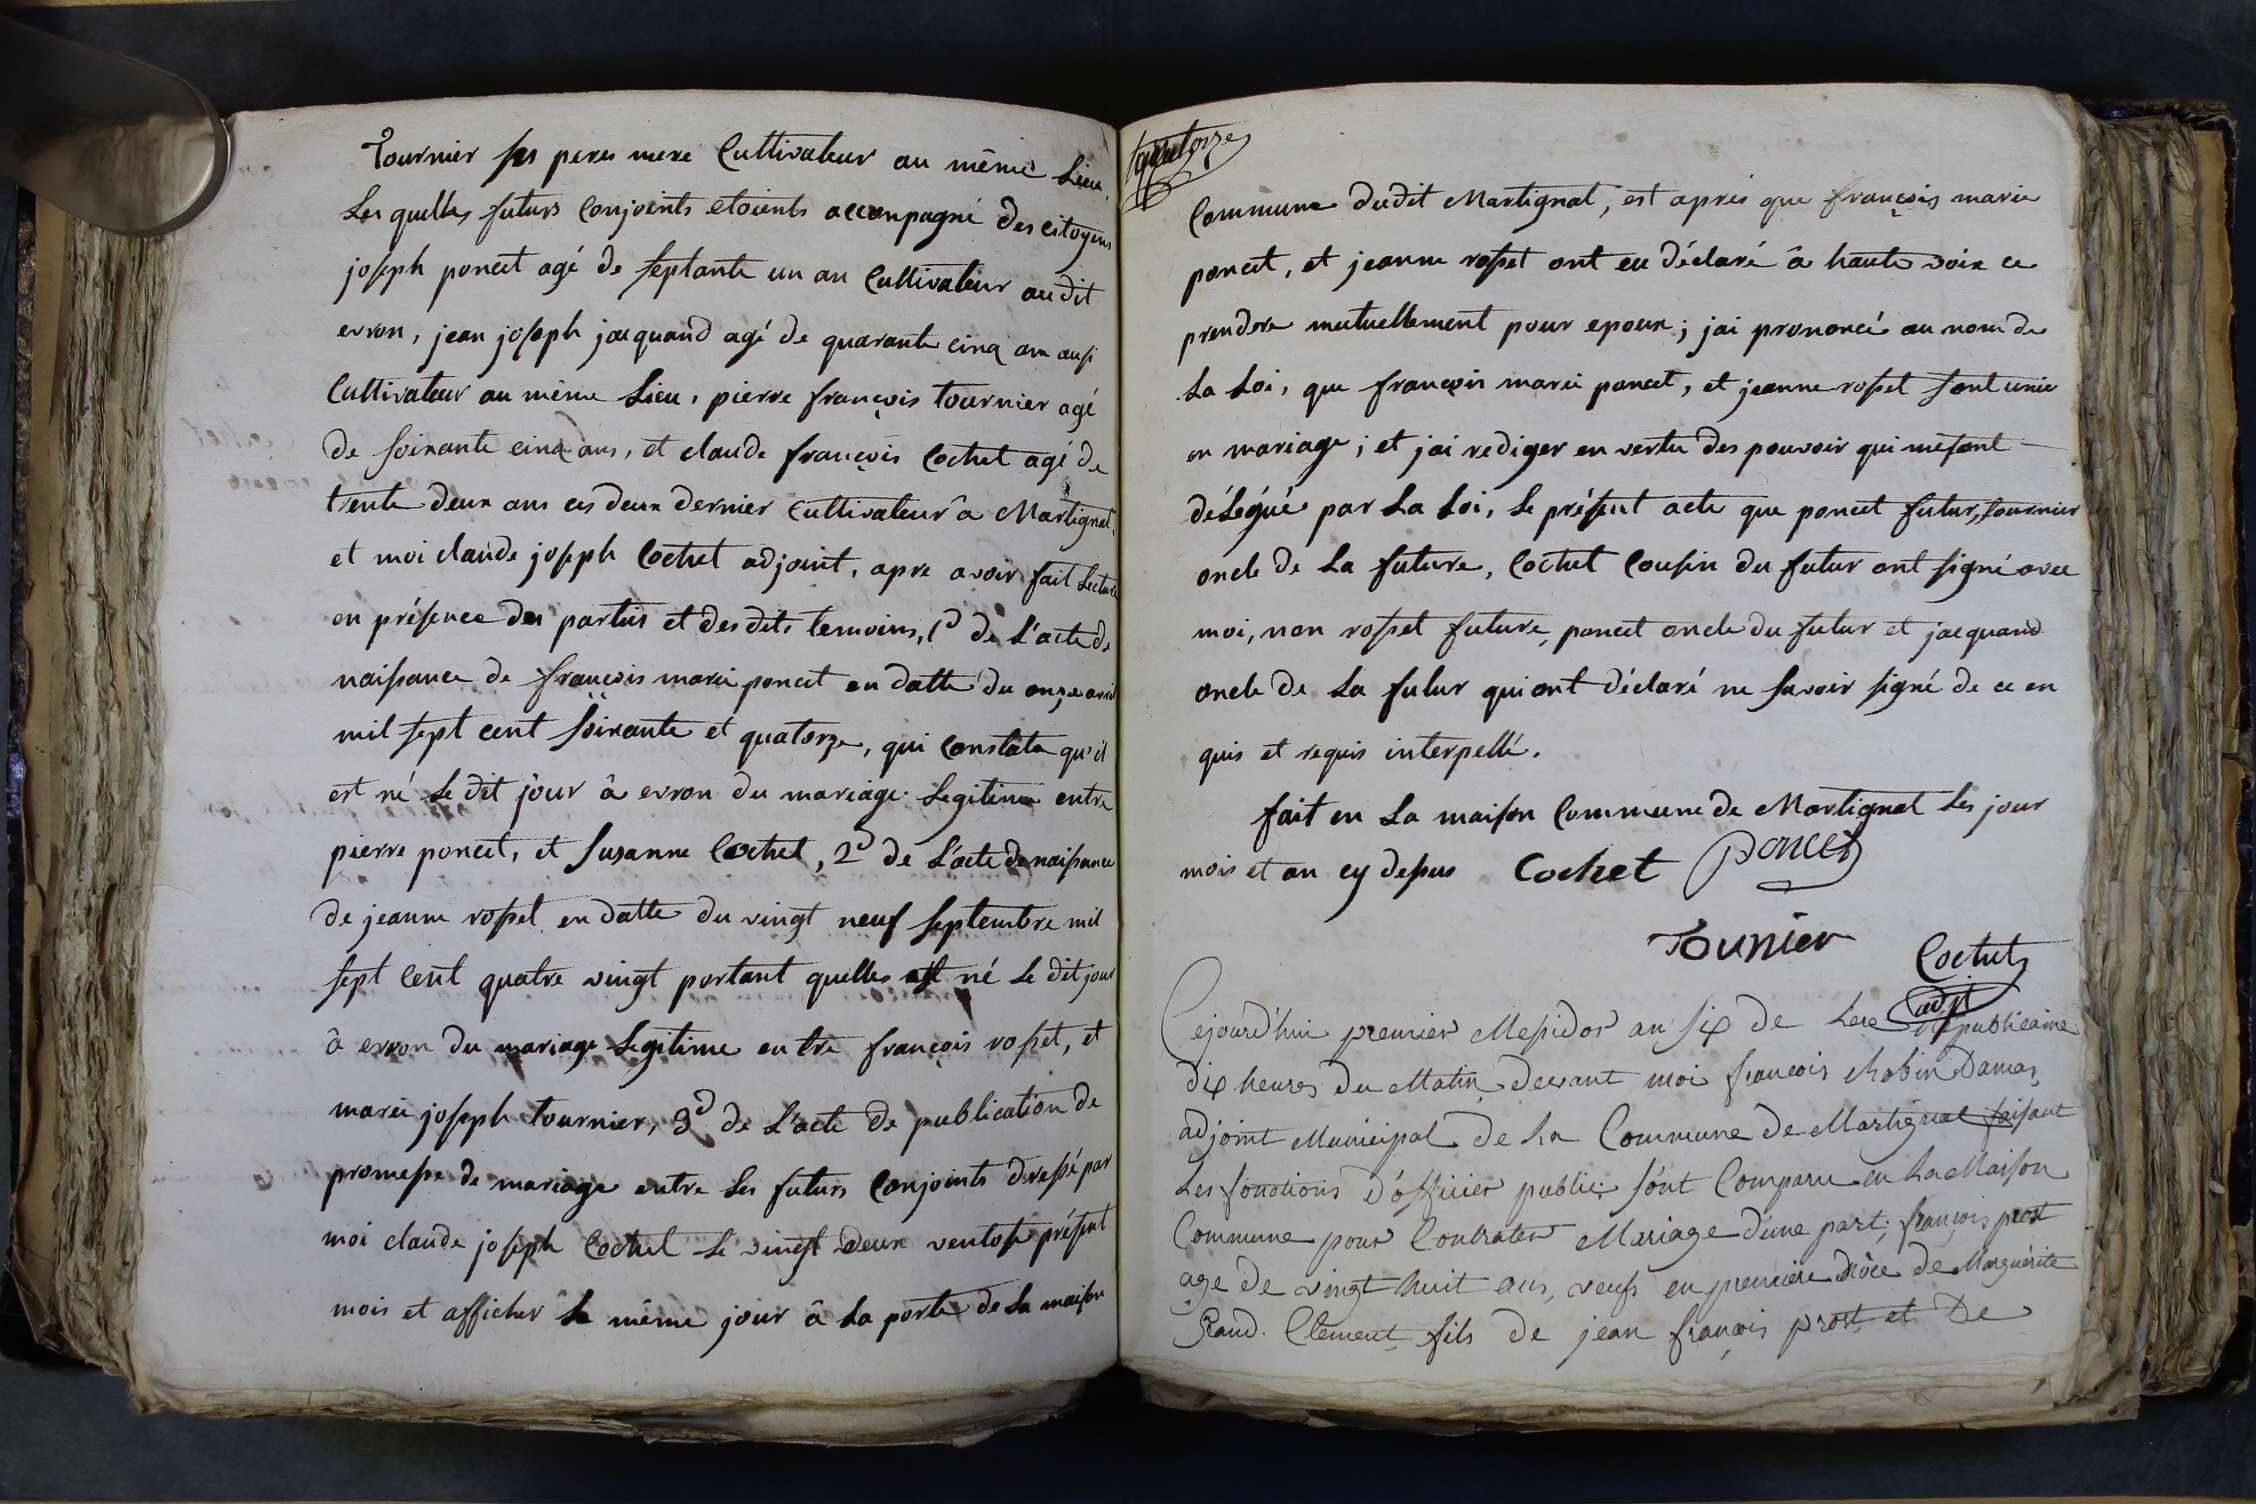 Tournier ses peres mere Cultivateur au même Lieu
Les quelles futurs Conjoints etoients acconpagné des citoyens
joseph poncet agé de septante un an Cultivateur audit
evron, jean joseph jacquand agé de quarante cinq ans ausi
Cultivateur au même Lieu, pierre françois tournier agé
de soixante cinq ans, et claude françois Cochet agé de
trente deux ans ces deux dernier Cultivateur â Martignat,
et moi claude joseph Cochet adjoint, apre avoir fait Lecture
en présence des partiis et desdits temoins, 1° de L'acte de
naissance de françois marie poncet en datte du onze avril
mil sept cent soixante et quatorze, qui Constate qu'il
est né Le dit jour â evron du mariage Legitime entre
pierre poncet, et susanne Cochet, 2° de L'acte de naissance
de jeanne rosset en datte du vingt neuf septembre mil
sept Cent quatre vingt portant quelles est né Le dit jour
â evron du mariage Legitime entre françois rosset, et
marie joseph tournier, 3° de L'acte de publication de
promesse de mariage entre Les futurs Conjoints dressé par
moi claude joseph Cochet Le vingt deux ventose présent
mois et afficher Le même jour â La porte de La maison
quatorze
Commune dudit Martignat, est aprés que françois marie
poncet, et jeanne rosset ont eu déclaré â haute voix ce
prendre mutuellement pour epoux; jai prononcé au nom de
La Loi, que françois marie poncet, et jeanne rosset sont unie
en mariage; et jai rediger en vertu des pouvoir qui me sont
délégué par La Loi, Le présent acte que poncet futur, tournier
oncle de La future, Cochet Cousin du futur ont signé avec
moi, non rosset future, poncet oncle du futur et jacquand
oncle de La futur qui ont déclaré ne savoir signé de ce en
quis et requis interpellé.
fait en La maison Commune de Martignat Les jour
mois et an cy dessus Cochet Poncet
Tounier
Cochet
adjt
Cejourd'hui premier Messidor an six de Lere Republicaine
dix heures du Matin, devant moi françois Robin Damas,
adjoint Municipal de La Commune de Martignat faisant
Les fonctions d'officier public; sont Comparu en La Maison
Commune pour Contrater Mariage d'une part; françois prost
age de vingt huit ans, veufs en premiere nôce de Marguérite
Clement fils de jean françois prost et De